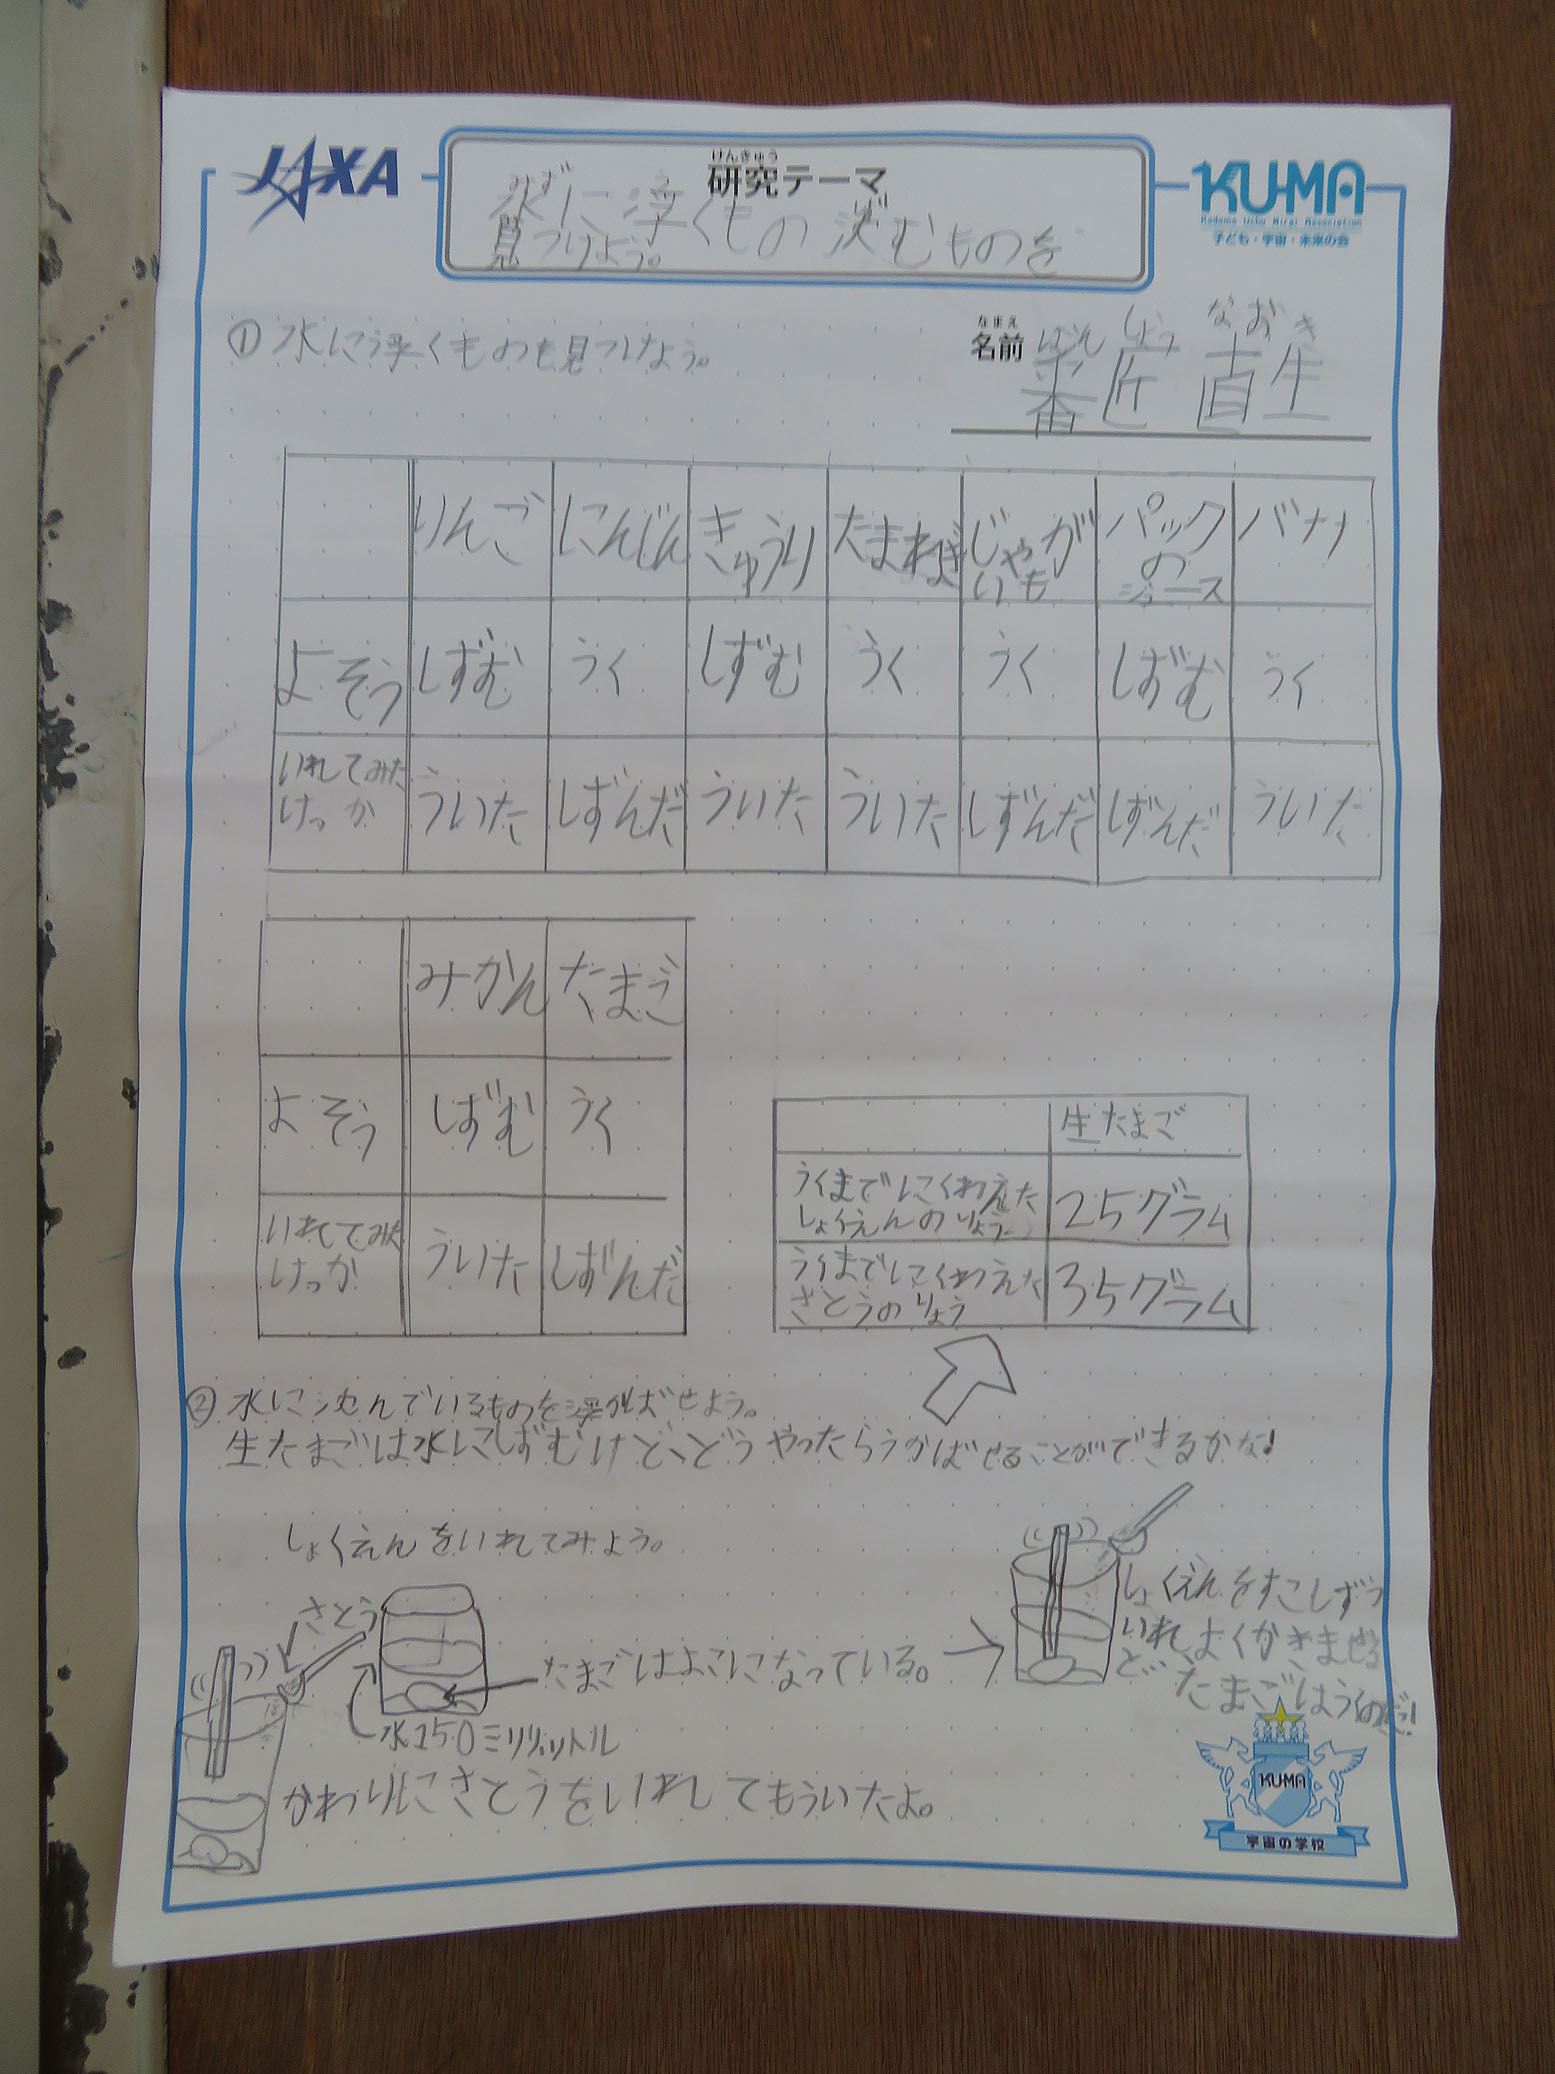 JAXA
けんきゅう
研究テーマ
KU-MA
Kodomo Uchu Mirai Association
子ども・宇宙・未来の会
みず
水に浮くもの沈むものを
見つけよう。
①水に浮くものも見つけよう。
なまえ
名前
ばんしょう なおき
番匠 直生
りんご にんじん きゅうり たまねぎ じゃがいも パックのジュース バナナ
よそう しずむ うく しずむ うく うく しずむ うく
いれてみたけっか ういた しずんだ ういた ういた しずんだ しずんだ ういた
みかん たまご
よそう しずむ うく
いれてみたけっか ういた しずんだ
生たまご
うくまでにくわえた
しょくえんのりょう 25グラム
うくまでにくわえた
さとうのりょう 35グラム
②水に沈んでいるものを浮かばせよう。
生たまごは水にしずむけど、どうやったらうかばせることができるかな!
しょくえんをいれてみよう。
さとう
たまごはよこになっている。
しょくえんをすこしずつ
いれ、よくかきまぜる
と…たまごはうくのだ!
水150ミリリットル
かわりにさとうをいれてもういたよ。
KUMA
宇宙の学校